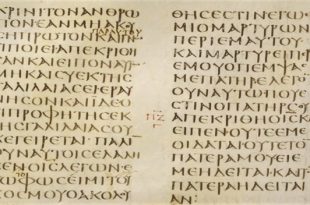 ΚΡΙΝΙΤΟΝΑΝΘΡΩ
ΠΟΝΕΑΝΜΗΑΚΟΥ
ΠΑΡΑΥΤΟΥ
ΤΙΠΟΙΕΙΑΠΕΚΡΙΘ
ΜΗΚΑΙϹΥΕΚΤΗϹ
ΓΑΛΙΛΑΙΑϹΕΡΑΥ
ΝΗϹΟΝΚΑΙΪΔΕ
ΠΡΟΦΗΤΗϹΕΚ
ΤΗϹΓΑΛΙΛΑΙΑϹΟΥ
ΕΓΕΙΡΕΤΑΙ ΠΑΛΙ
ΟΥΝΑΥΤΟΙϹΕΛΑΛ
ΤΟΦΩϹΕΙΜΙΤΟΥΚΟϹ
ΜΟΥΟΑΚΟΛΟΥ
ΘΗϹΕϹΤΙΝΕΓΩ
ΜΙΟΜΑΡΤΥΡΩΝ
ΠΕΡΙΕΜΑΥΤΟΥ
ΚΑΙΜΑΡΤΥΡΕΙΠΕ
ΡΙΕΜΟΥΟΠΕΜΨΑϹ
ΜΕΠΑΤΗΡΕΛΕΓΟ
ΟΥΝΑΥΤΩΠΟΥΕ
ϹΤΙΝΟΠΑΤΗΡϹΟΥ
ΑΠΕΚΡΙΘΗΟΙϹΚΑΙ
ΕΙΠΕΝΟΥΤΕΕΜΕ
ΟΙΔΑΤΕΟΥΤΕΤΟΝ
ΠΑΤΕΡΑΜΟΥΕΙΕ
ΜΕΗΔΕΙΤΑΙΚΑΙΤ
ΠΑΤΕΡΑΗΔΕΙΤΑΙ
ΑΝ·